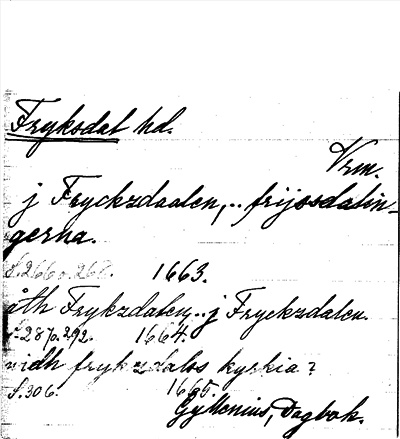 Fryksdal hd.
Vrm.
j Fryckzdaalen,.. frijosdalin-
gerna.
s. 266 o. 268. 1663.
åth Frykzdalen,.. j Fryckzdalen.
s. 287 o. 292. 1664.
widh frykzdalss kyrkia?
s. 306. 1665.
Gyllenius, Dagbok.